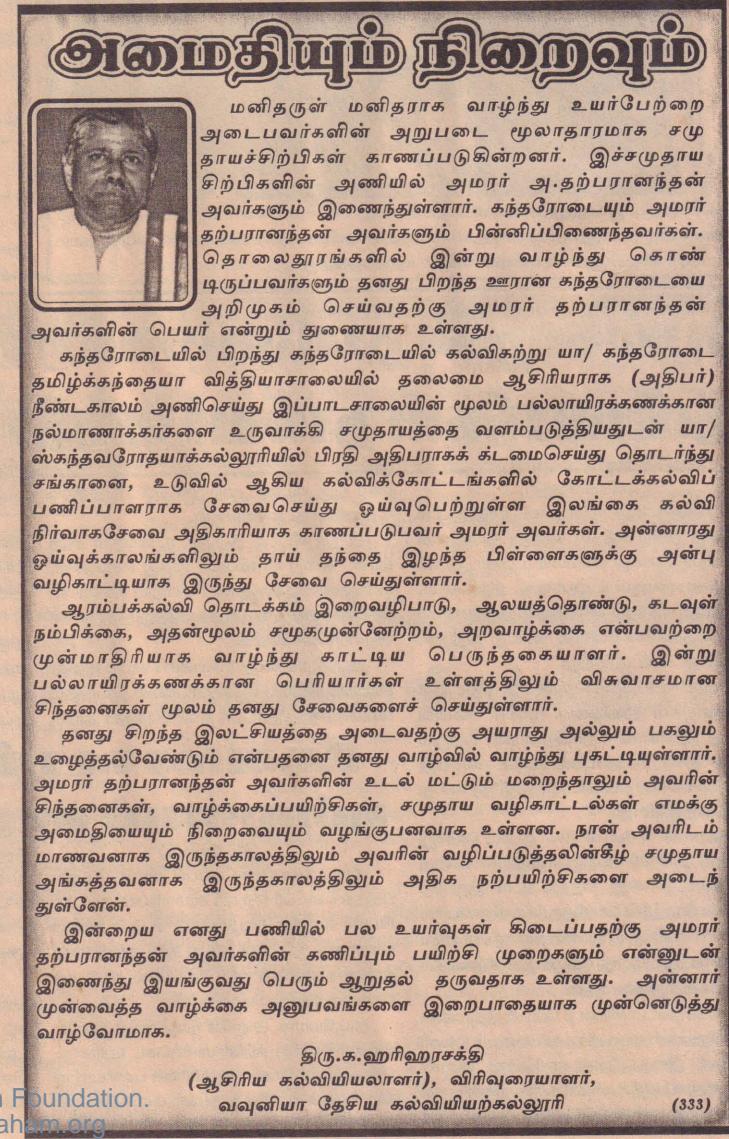 அமைதியும் நிறைவும்
மனிதருள் மனிதராக வாழ்ந்து உயர்பேற்றை
அடைபவர்களின் அறுபடை மூலாதாரமாக சமு
தாயச்சிற்பிகள் காணப்படுகின்றனர். இச்சமுதாய
சிற்பிகளின் அணியில் அமரர் அ.தற்பரானந்தன்
அவர்களும் இணைந்துள்ளார். கந்தரோடையும் அமரர்
தற்பரானந்தன் அவர்களும் பின்னிப்பிணைந்தவர்கள்.
தொலைதூரங்களில் இன்று வாழ்ந்து கொண்
டிருப்பவர்களும் தனது பிறந்த ஊரான கந்தரோடையை
அறிமுகம் செய்வதற்கு அமரர் தற்பரானந்தன்
அவர்களின் பெயர் என்றும் துணையாக உள்ளது.
கந்தரோடையில் பிறந்து கந்தரோடையில் கல்விகற்று யா/ கந்தரோடை
தமிழ்க்கந்தையா வித்தியாசாலையில் தலைமை ஆசிரியராக (அதிபர்)
நீண்டகாலம் அணிசெய்து இப்பாடசாலையின் மூலம் பல்லாயிரக்கணக்கான
நல்மாணாக்கர்களை உருவாக்கி சமுதாயத்தை வளம்படுத்தியதுடன் யா/
ஸ்கந்தவரோதயாக்கல்லூரியில் பிரதி அதிபராகக் க்டமைசெய்து தொடர்ந்து
சங்கானை, உடுவில் ஆகிய கல்விக்கோட்டங்களில் கோட்டக்கல்விப்
பணிப்பாளராக சேவைசெய்து ஓய்வுபெற்றுள்ள இலங்கை கல்வி
நிர்வாகசேவை அதிகாரியாக காணப்படுபவர் அமரர் அவர்கள். அன்னாரது
ஓய்வுக்காலங்களிலும் தாய் தந்தை இழந்த பிள்ளைகளுக்கு அன்பு
வழிகாட்டியாக இருந்து சேவை செய்துள்ளார்.
ஆரம்பக்கல்வி தொடக்கம் இறைவழிபாடு, ஆலயத்தொண்டு, கடவுள்
நம்பிக்கை, அதன்மூலம் சமூகமுன்னேற்றம், அறவாழ்க்கை என்பவற்றை
முன்மாதிரியாக வாழ்ந்து காட்டிய பெருந்தகையாளர். இன்று
பல்லாயிரக்கணக்கான பெரியார்கள் உள்ளத்திலும் விசுவாசமான
சிந்தனைகள் மூலம் தனது சேவைகளைச் செய்துள்ளார்.
தனது சிறந்த இலட்சியத்தை அடைவதற்கு அயராது அல்லும் பகலும்
உழைத்தல்வேண்டும் என்பதனை தனது வாழ்வில் வாழ்ந்து புகட்டியுள்ளார்.
அமரர் தற்பரானந்தன் அவர்களின் உடல் மட்டும் மறைந்தாலும் அவரின்
சிந்தனைகள், வாழ்க்கைப்பயிற்சிகள், சமுதாய வழிகாட்டல்கள் எமக்கு
அமைதியையும் நிறைவையும் வழங்குபனவாக உள்ளன. நான் அவரிடம்
மாணவனாக இருந்தகாலத்திலும் அவரின் வழிப்படுத்தலின்கீழ் சமுதாய
அங்கத்தவனாக இருந்தகாலத்திலும் அதிக நற்பயிற்சிகளை அடைந்
துள்ளேன்.
இன்றைய எனது பணியில் பல உயர்வுகள் கிடைப்பதற்கு அமரர்
தற்பரானந்தன் அவர்களின் கணிப்பும் பயிற்சி முறைகளும் என்னுடன்
இணைந்து இயங்குவது பெரும் ஆறுதல் தருவதாக உள்ளது. அன்னார்
முன்வைத்த வாழ்க்கை அனுபவங்களை இறைபாதையாக முன்னெடுத்து
வாழ்வோமாக.
திரு.க.ஹரிஹரசக்தி
(ஆசிரிய கல்வியியலாளர்), விரிவுரையாளர்,
வவுனியா தேசிய கல்வியியற்கல்லூரி (333)
Foundation.
aham.org